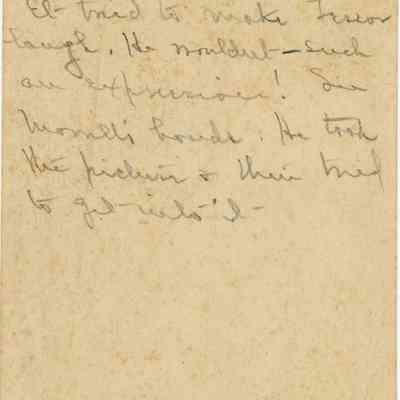 El- tried to make
laugh. He wouldn't - such
an expression! See
Morrell's hands. He took
the picture & then tried
to get into it -